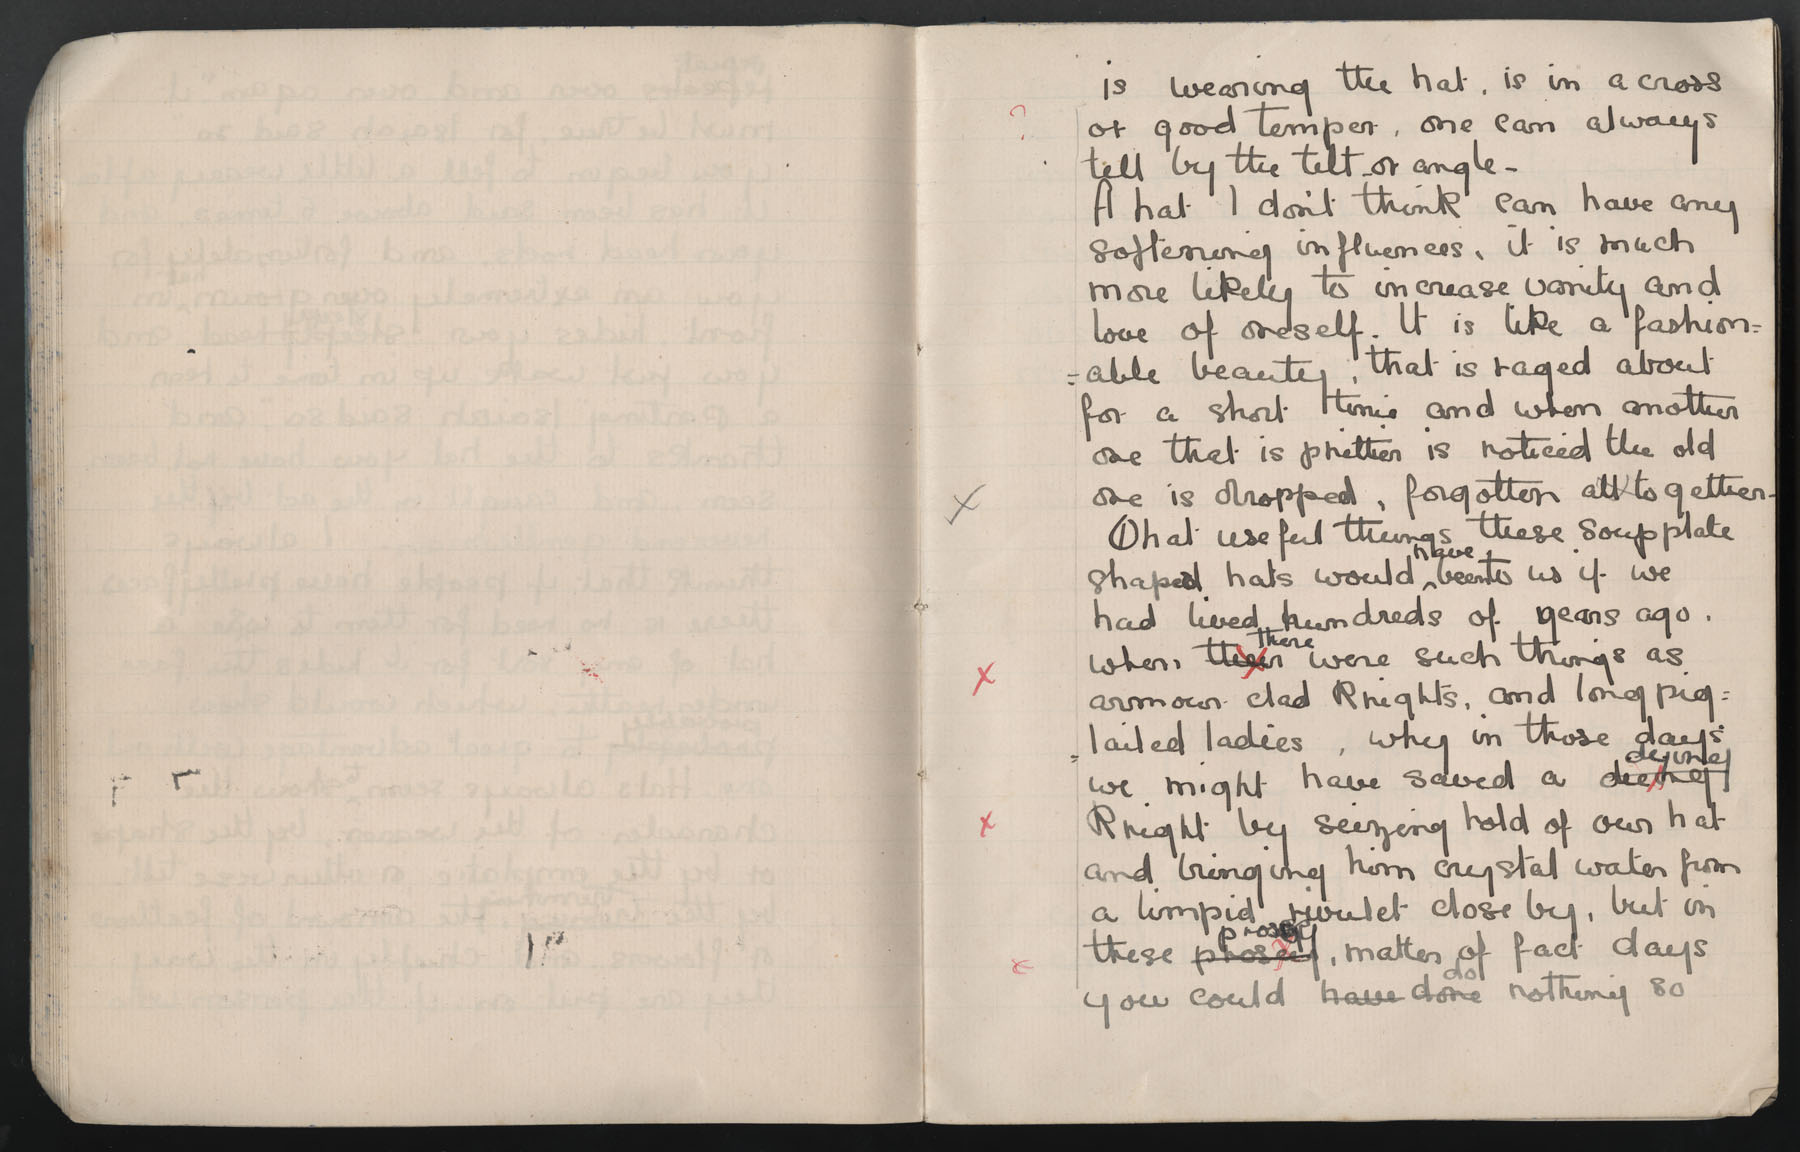 is wearing the hat, is in a cross
or good temper, one can always
tell by the tilt or angle -
A hat I don't think can have any
softening influences, it is much
more likely to increase vanity and
love of oneself. It is like a fashion=
=able beauty, that is raged about
for a short time and when another
one that is prettier is noticed the old
one is dropped, forgotten alltogether-
What useful things these soupplate
shaped hats would have been to us if we
had lived hundreds of years ago.
when their there were such things as
armour clad Knights, and long pig=
=tailed ladies, why in those days
we might have saved a dieing dying
Knight by seizing hold of our hat
and bringing him crystal water from
a limpid rivulet close by, but in
these prosy, matter of fact days
you could have done do nothing so